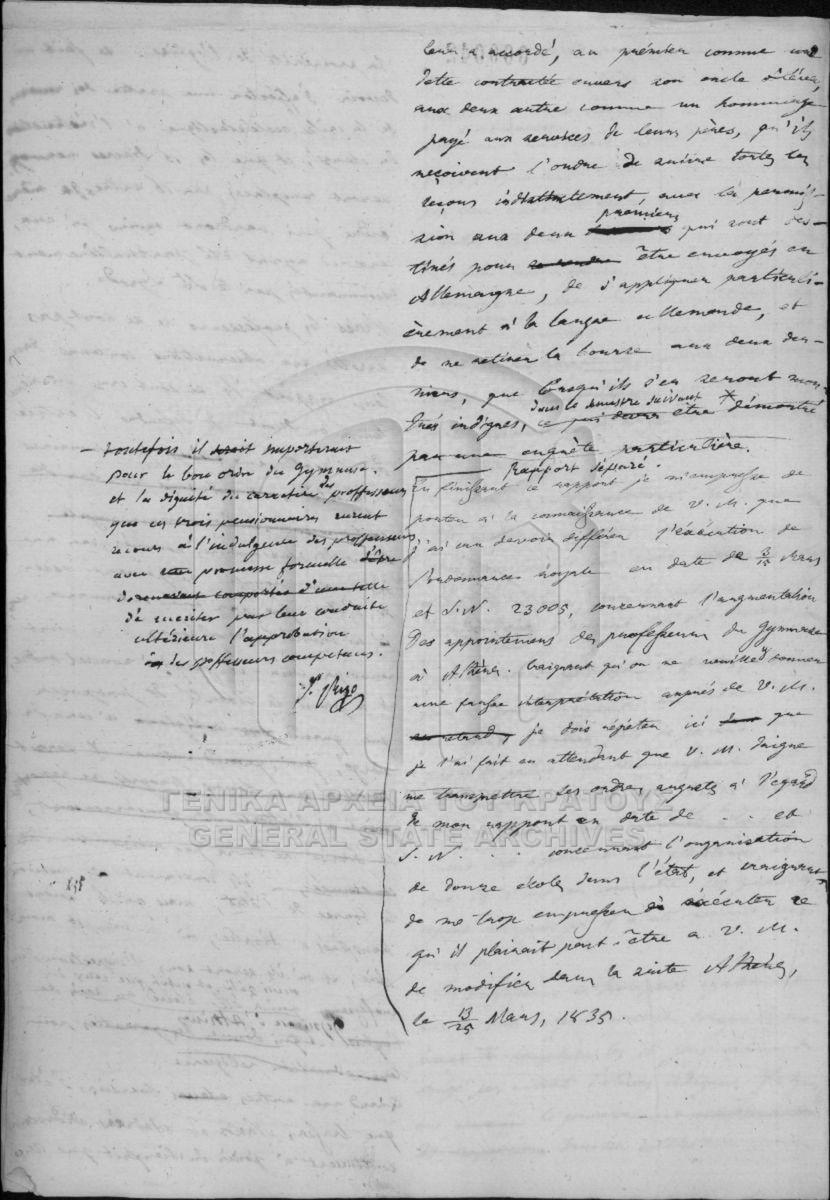 leur a accordé, au prémier comme une
dette contractée envers son oncle
aux deux autre comme un hommage
payé aux services de leurs pères, qu'ils
reçoivent l'ordre de suivre toutes les
leçons indistinctement, avec la permis-
sion aux deux premiers qui sont des-
tinés pour se rendre être envoyés en
Allemagne, de s'appliquer particuli-
èrement à la langue allemande, et
de ne retirer la bourse aux deux der-
niers, que lorsqu'ils s'en seront mon-
dans le semestre suivant *
trés indignes, ce qui devra être démontré
par une enquête particulière.
Rapport séparé.
En finissant ce rapport je m'empresse de
porter à la connaissance de V. M. que
j'ai cru devoir différer l'éxécution de
l'ordonnance royale en date de 3/15 Mars
et S. N. 23005, concernant l'augmentation
des appointemens des professeurs du Gymnase
à Athènes. Craignant qu'on ne veuille y donner
une fausse interprétation auprès de V. M.
je dois répéter ici que
je l'ai fait en attendant que V. M. daigne
me transmettre ses ordres augustes à l'égard
de mon rapport en date de . . et
S. N. . . concernant l'organisation
de douze écoles dans l'état, et craignant
de me trop empresser à éxécuter ce
qu'il plairait peut-être a V. M.
de modifier dans la suite Athènes,
le 13/25 Mars, 1835.
– toutefois il serait importerait
pour le bon ordre du Gymnase.
et la dignité du caractère des professeurs
que ces trois pensionnaires eurent
recours à l'indulgence des professeurs
avec promesse formelle d'être
de mériter par leur conduite
ultérieure l'approbation
des professeurs compétens.
J. Rizo
ΓΕΝΙΚΑ ΑΡΧΕΙΑ ΤΟΥ ΚΡΑΤΟΥΣ
GENERAL STATE ARCHIVES